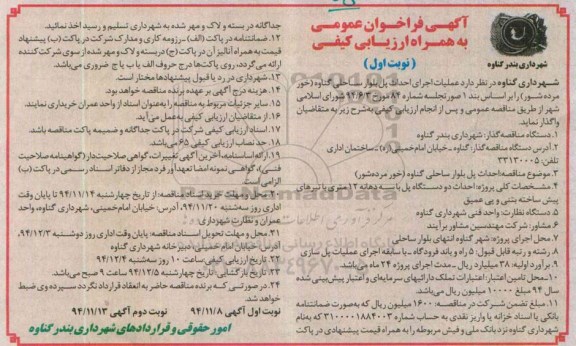 آگهی فراخوان عمومی
به همراه ارزیابی کیفی
(نوبت اول)
شهرداری بندر گناوه
شهرداری گناوه در نظر دارد عملیات اجرای احداث پل بلوار ساحلی گناوه (خور
مرده شور) را بر اساس بند ۱ صورتجلسه شماره ۸۲ مورخ ۹۴/۶/۳ شورای اسلامی
شهر از طریق مناقصه عمومی و پس از انجام ارزیابی کیفی به شرح زیر به متقاضیان
واگذار نماید.
۱. دستگاه مناقصه گذار: شهرداری بندر گناوه
۲. آدرس دستگاه مناقصه گذار: گناوه ـ خیابان امام خمینی(ره) ـ ساختمان اداری
تلفن: ۳۳۱۳۰۰۰۵
۳. موضوع مناقصه: احداث پل بلوار ساحلی گناوه (خور مرده شور)
۴. مشخصات کلی پروژه: احداث دو دستگاه پل با سه دهانه ۱۲ متری با تیرهای
پیش ساخته بتنی و پی عمیق
۵. دستگاه نظارت: واحد فنی شهرداری گناوه
۶. مشاور: شرکت مهندسین مشاور برآیند
۷. محل اجرای پروژه: شهر گناوه انتهای بلوار ساحلی
۸. رشته و رتبه قابل قبول: ۵ راه و باند فرودگاه ـ با سابقه اجرای عملیات پل سازی
۹. برآورد اولیه: ۳۸ میلیارد ریال ـ مدت اجرای پروژه ۲۴ ماه می باشد.
۱۰. محل تامین اعتبار: اعتبارات تملک دارائیهای سرمایه ای و اعتبار پیش بینی شده
سال ۹۴ مبلغ ۱۰۰۰۰ میلیون ریال می باشد.
۱۱. مبلغ تضمین شرکت در مناقصه: ۱۶۰۰ میلیون ریال که به صورت ضمانتنامه
بانکی یا اسناد خزانه یا واریز نقدی به حساب شماره ۳۱۰۰۰۰۱۸۸۴۰۰۳ که به نام
شهرداری گناوه نزد بانک ملی و فیش مربوطه را به همراه قیمت پیشنهادی در پاکت
جداگانه در بسته و لاک و مهر شده به شهرداری تسلیم و رسید اخذ نمائید.
۱۲. ضمانتنامه در پاکت (الف) ـ رزومه کاری و مدارک شرکت در پاکت (ب) پیشنهاد
قیمت به همراه آنالیز آن در پاکت (ج) در بسته و لاک و مهر شده از سوی شرکت کننده
ارائه می گردد، روی پاکت ها درج حروف الف یا ب یا ج ضروری می باشد.
۱۳. شهرداری در رد یا قبول پیشنهادها مختار است.
۱۴. هزینه درج آگهی بر عهده برنده مناقصه خواهد بود.
۱۵. سایر جزئیات مربوط به مناقصه را به عنوان اسناد از واحد عمران خریداری نمایند.
۱۶. از متقاضیان ارزیابی کیفی به عمل می آید.
۱۷. اسناد ارزیابی کیفی شرکت در پاکت جداگانه و ضمیمه پاکت مناقصه باشد.
۱۸. حد نصاب ارزیابی کیفی ۶۵ می باشد.
۱۹. ارائه اساسنامه، آخرین آگهی تغییرات، گواهی صلاحیت دار (گواهینامه صلاحیت
فنی)، گواهی نمونه امضا تعهدآور فرد مجاز از دفاتر اسناد رسمی در پاکت (ب)
الزامی است.
۲۰. محل و مهلت خرید اسناد مناقصه: از تاریخ چهارشنبه ۹۴/۱۱/۱۴ تا پایان وقت
اداری روز سه شنبه ۹۴/۱۱/۲۰، آدرس: خیابان امام خمینی، شهرداری گناوه، واحد
عمران و نظارت شهرداری
۲۱. محل و مهلت تحویل اسناد مناقصه: پایان وقت اداری روز دوشنبه ۹۴/۱۲/۳،
آدرس: خیابان امام خمینی، دبیرخانه شهرداری گناوه
۲۲. تاریخ ارزیابی کیفی ساعت ۱۰ روز سه شنبه ۹۴/۱۲/۴
۲۳. تاریخ بازگشایی تاریخ چهارشنبه ۹۴/۱۲/۵ ساعت ۹ صبح می باشد.
۲۴. در صورتی که برنده مناقصه حاضر به انعقاد قرارداد نگردد سپرده وی ضبط
خواهد شد.
نوبت اول آگهی ۹۴/۱۱/۸ نوبت دوم آگهی ۹۴/۱۱/۱۳
امور حقوقی و قراردادهای شهرداری بندر گناوه